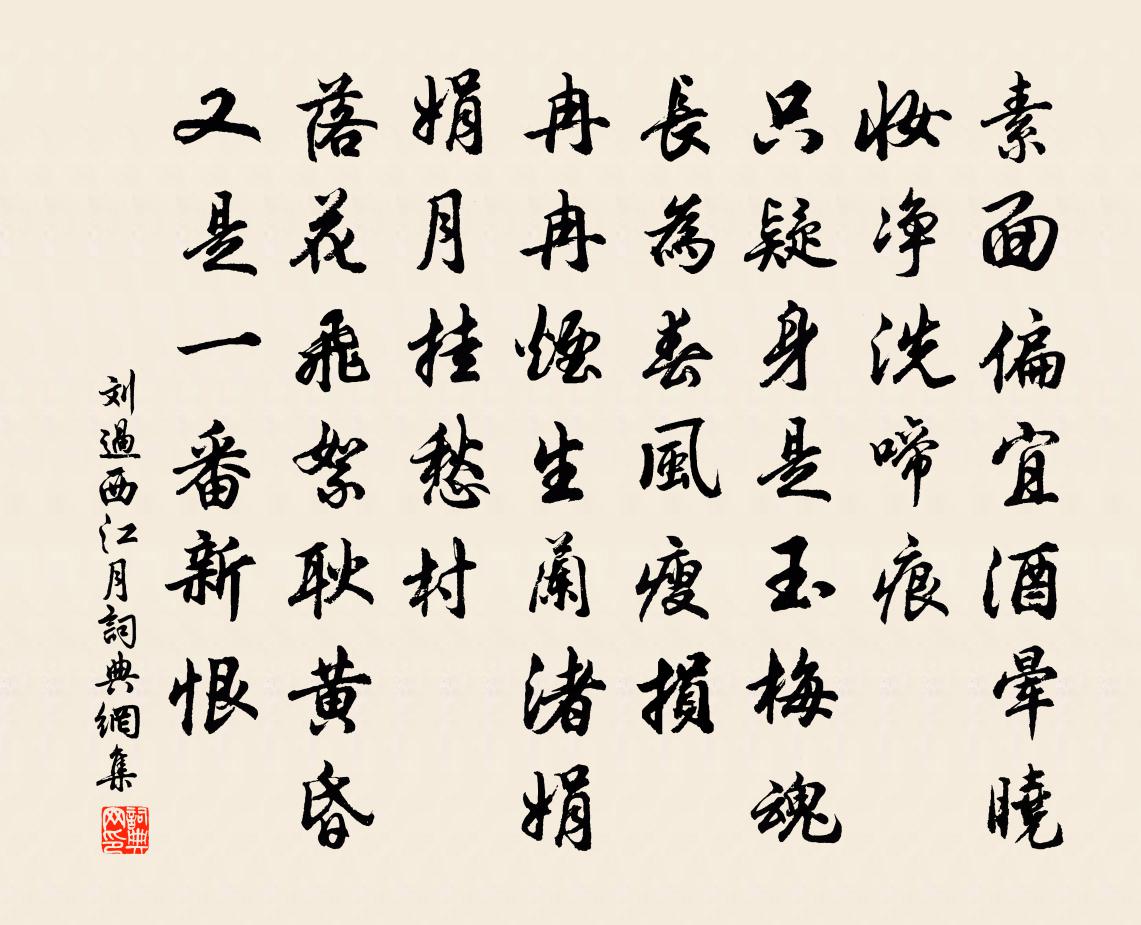 素面偏宜酒暈曉
妝净洗啼痕
只疑身是玉梅魂
長為春風瘦損
冉冉煙生蘭渚娟
娟月挂愁村
落花飛絮耿黄昏
又是一番新恨
刘過西江月詞典網集
詞典网印